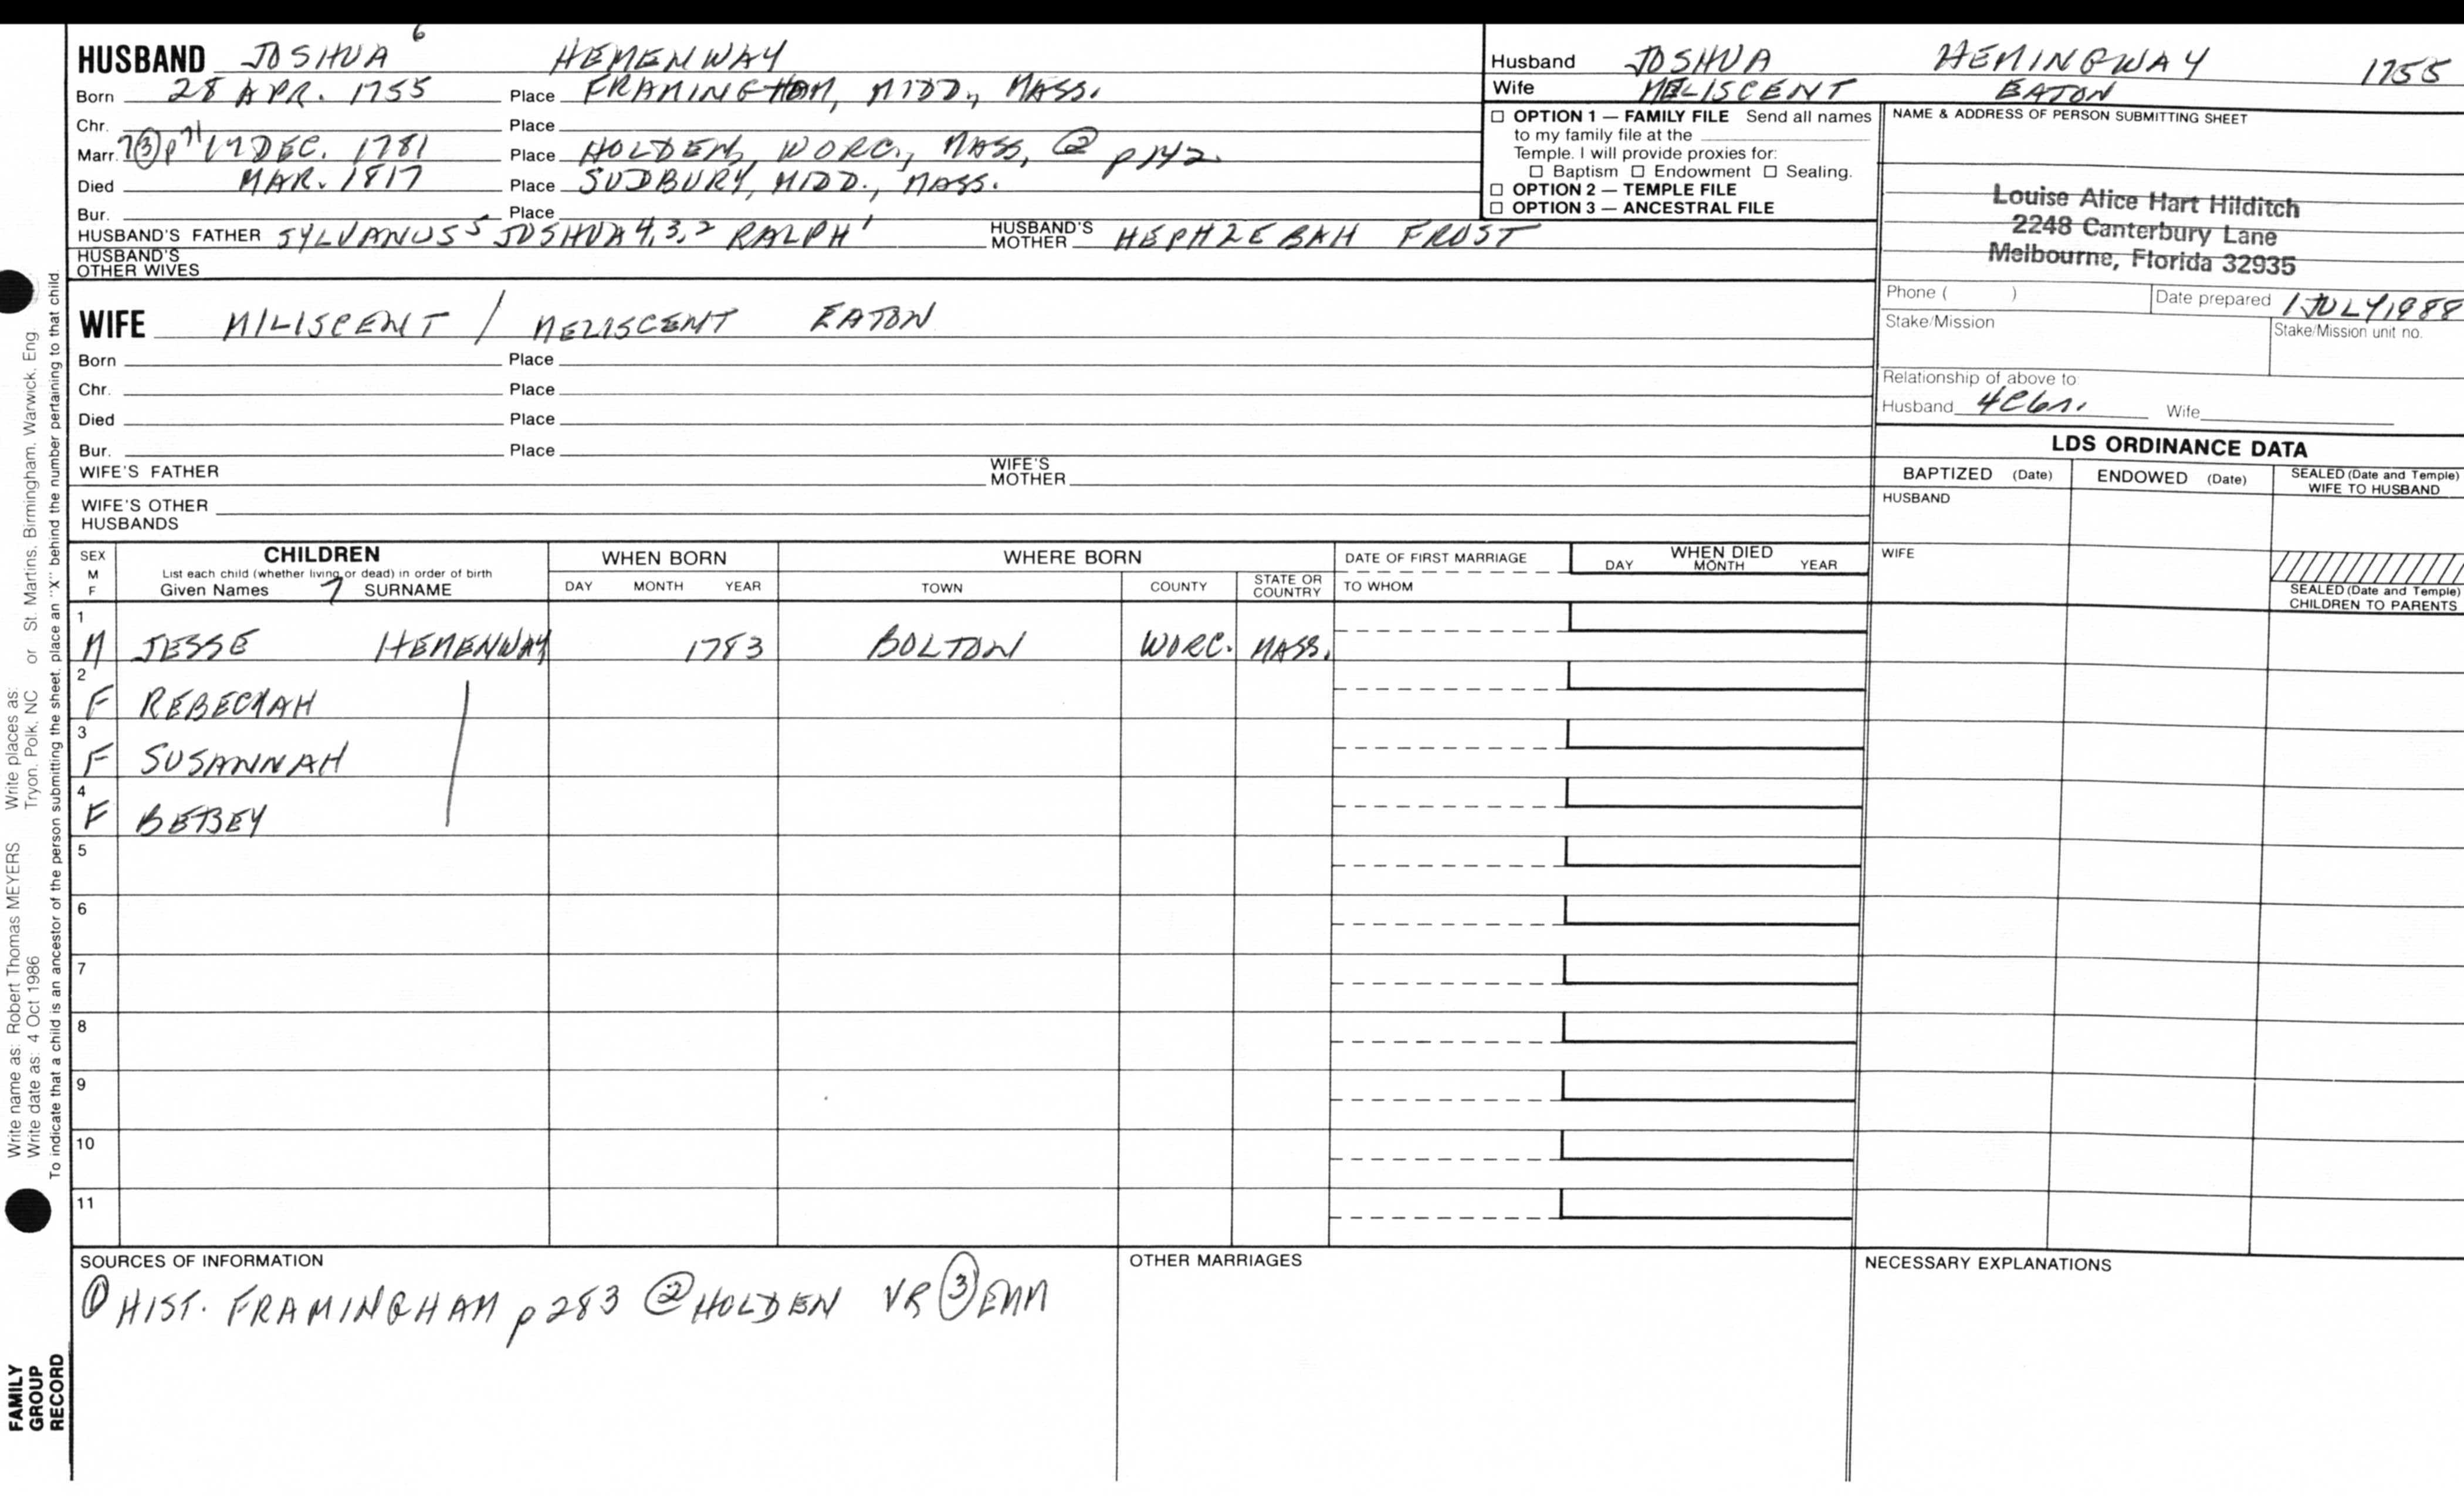 HUSBAND JOSHUA 6 HEMENWAY
Born 28 APR. 1755 Place FRAMINGHAM, MIDD., MASS.
Chr. Place
Marr. DEC. 1781 Place HOLDEN, WORC., MASS, ② p142.
Died MAR. 1817 Place SUDBURY, MIDD., MASS.
Bur. Place
HUSBAND'S FATHER SYLVANUS 5 JOSHUA 4,3,2 RALPH 1 HUSBAND'S MOTHER HEPHZEBAH FROST
HUSBAND'S OTHER WIVES
Husband JOSHUA HEMINGWAY 1755
Wife MELISCENT EATON
☐ OPTION 1 — FAMILY FILE Send all names
to my family file at the
Temple. I will provide proxies for:
☐ Baptism ☐ Endowment ☐ Sealing.
☐ OPTION 2 — TEMPLE FILE
☐ OPTION 3 — ANCESTRAL FILE
NAME & ADDRESS OF PERSON SUBMITTING SHEET
Louise Alice Hart Hilditch
2248 Canterbury Lane
Melbourne, Florida 32935
Phone ( ) Date prepared 1 JULY 1988
Stake/Mission Stake/Mission unit no.
Relationship of above to
Husband Wife
WIFE MILISCENT / MELISCENT EATON
Born Place
Chr. Place
Died Place
Bur. Place
WIFE'S FATHER WIFE'S MOTHER
WIFE'S OTHER HUSBANDS
LDS ORDINANCE DATA
BAPTIZED (Date) ENDOWED (Date) SEALED (Date and Temple) WIFE TO HUSBAND
HUSBAND
WIFE
SEALED (Date and Temple) CHILDREN TO PARENTS
SEX M F CHILDREN WHEN BORN WHERE BORN DATE OF FIRST MARRIAGE WHEN DIED
List each child (whether living or dead) in order of birth
Given Names 7 SURNAME DAY MONTH YEAR TOWN COUNTY STATE OR COUNTRY TO WHOM DAY MONTH YEAR
1 M JESSE HEMENWAY 1783 BOLTON WORC. MASS.
2 F REBECKAH
3 F SUSANNAH
4 F BETSEY
5
6
7
8
9
10
11
SOURCES OF INFORMATION
① HIST. FRAMINGHAM p283 ② HOLDEN VR ③ EMM
OTHER MARRIAGES
NECESSARY EXPLANATIONS
Write name as: Robert Thomas MEYERS Write places as: Tryon, Polk, NC or St. Martins, Birmingham, Warwick, Eng
Write date as: 4 Oct 1986
To indicate that a child is an ancestor of the person submitting the sheet, place an "X" behind the number pertaining to that child
FAMILY GROUP RECORD